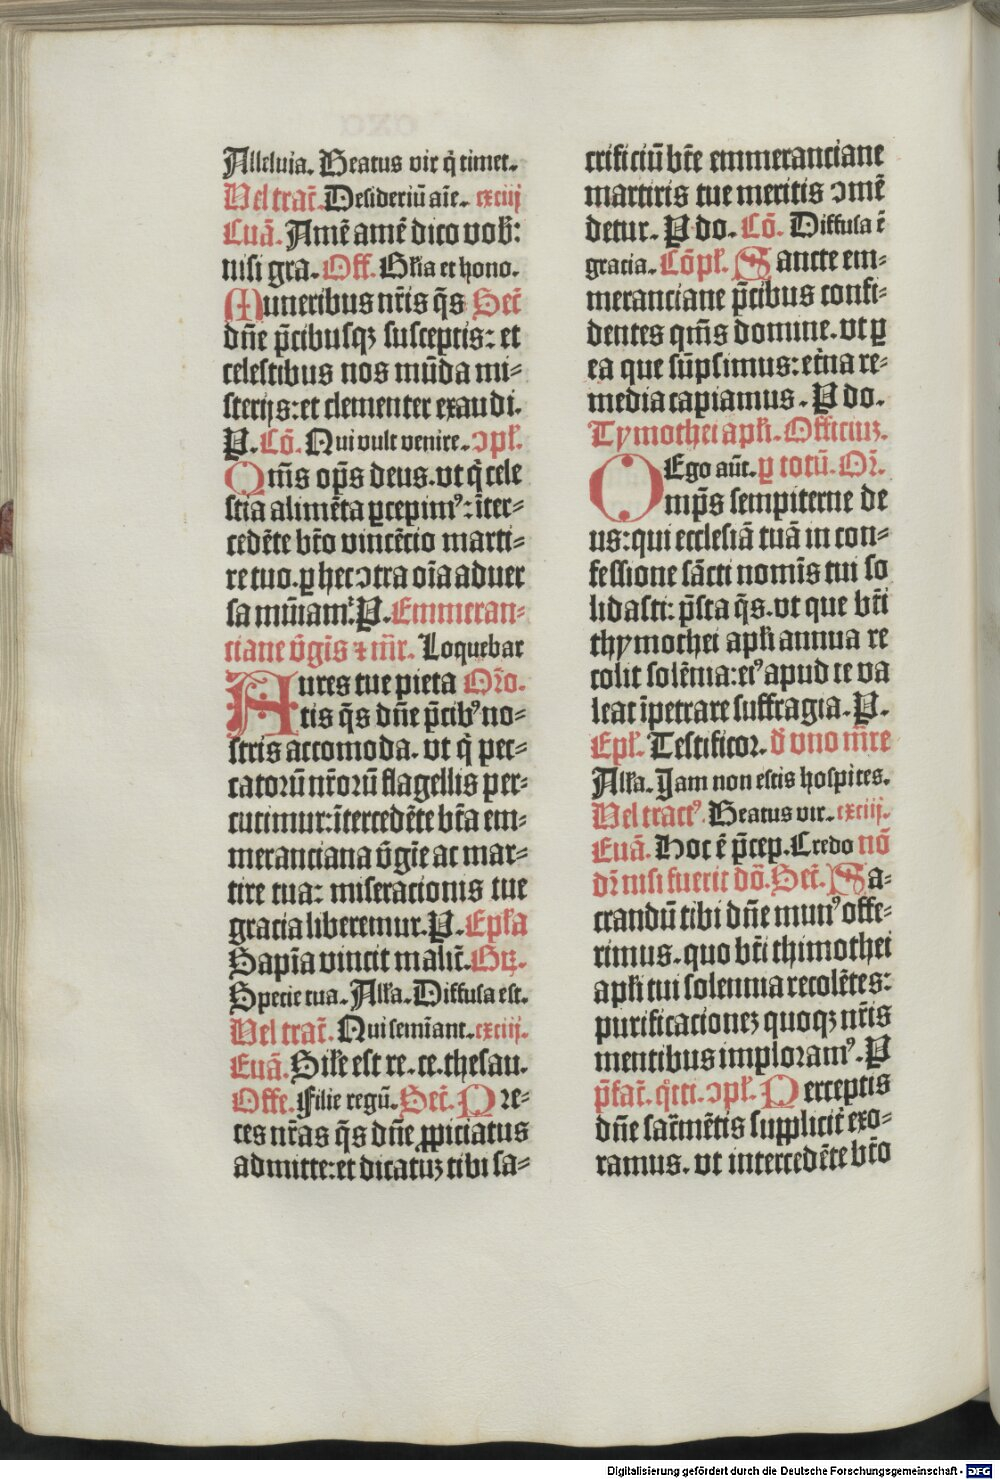 Alleluia. Beatus vir q̄ timet.
Vel tract̄. Desideriū aīe. cxciij
Euā. Amē amē dico vob̄:
nisi gra. Off. Glīa et hono.
Muneribus nr̄is q̄s Secr̄
dn̄e p̄cibusqꝫ susceptis: et
celestibus nos mūda mi⸗
sterijs: et clementer exaudi.
P. Cō. Qui vult venire. ↄpl̄.
Qm̄s op̄s deus. vt q̄ cele
stia alimēta ꝑcepimꝰ: īter⸗
cedēte bt̄o vincēcio marti⸗
re tuo. ꝑ hec ↄtra oīa aduer
sa mūiamꝰ. P. Emmeran⸗
ciane v̄gīs ⁊ mr̄. Loquebar
Aures tue pieta Or̄o.
tis q̄s dn̄e p̄cibꝰ no⸗
stris accomoda. vt q̄ pec⸗
catorū nr̄orū flagellis per⸗
cutimur: ītercedēte bt̄a em⸗
meranciana v̄gīe ac mar⸗
tire tua: miseracionis tue
gracia liberemur. P. Epl̄a
Sapīa vincit malic̄. Gꝝ.
Specie tua. All̄a. Diffusa est.
Vel tract̄. Qui semīant. cxciij.
Euā. Sil̄e est re. ce. thesau.
Offe. Filie regū. Secr̄. Pre⸗
ces nr̄as q̄s dn̄e ꝓpiciatus
admitte: et dicatuꝫ tibi sa⸗
crificiū bt̄e emmeranciane
martiris tue meritis ↄmē
detur. P do. Cō. Diffusa ē
gracia. Cōpl̄. Sancte em⸗
meranciane p̄cibus confi⸗
dentes qm̄s domine. vt ꝑ
ea que sūpsimus: et̄na re⸗
media capiamus. P do.
Tymothei apl̄i. Officiuꝫ.
Ego aūt. ꝑ totū. Or̄.
Omp̄s sempiterne de
us: qui ecclesiā tuā in con⸗
fessione sācti nomīs tui so
lidasti: p̄sta q̄s. vt que bt̄i
thymothei apl̄i annua re
colit solēnia: eiꝰ apud te va
leat īpetrare suffragia. P.
Epl̄. Testificor. d̄ vno mr̄e
All̄a. Jam non estis hospites.
Vel tractꝰ. Beatus vir. cxciij.
Euā. Hoc ē p̄cep. Credo nō
dr̄ nisi fuerit dō. Secr̄. Sa⸗
crandū tibi dn̄e munꝰ offe⸗
rimus. quo bt̄i thimothei
apl̄i tui solennia recolētes:
purificacioneꝫ quoqꝫ nr̄is
mentibus imploramꝰ. P
p̄fac̄. q̊tti. ↄpl̄. Perceptis
dn̄e sac̄mētis suꝓplicit̄ exo⸗
ramus. vt intercedēte bt̄o
Digitalisierung gefördert durch die Deutsche Forschungsgemeinschaft - DFG